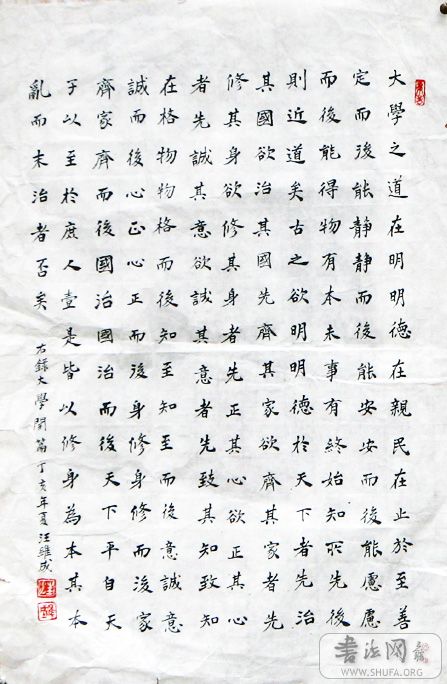 大學之道在明明德在親民在止於至善
定而後能静静而後能安安而後能慮慮
而後能得物有本末事有終始知所先後
則近道矣古之欲明明德於天下者先治
其國欲治其國先齊其家欲齊其家者先
修其身欲修其身者先正其心欲正其心
者先誠其意欲誠其意者先致其知致知
在格物物格而後知至知至而後意誠意
誠而後心正心正而後身修身修而後家
齊家齊而後國治國治而後天下平自天
子以至於庶人壹是皆以修身為本其本
亂而末治者否矣
右錄大學開篇丁亥年夏汪維成
書法网
WWW.SHUFA.ORG